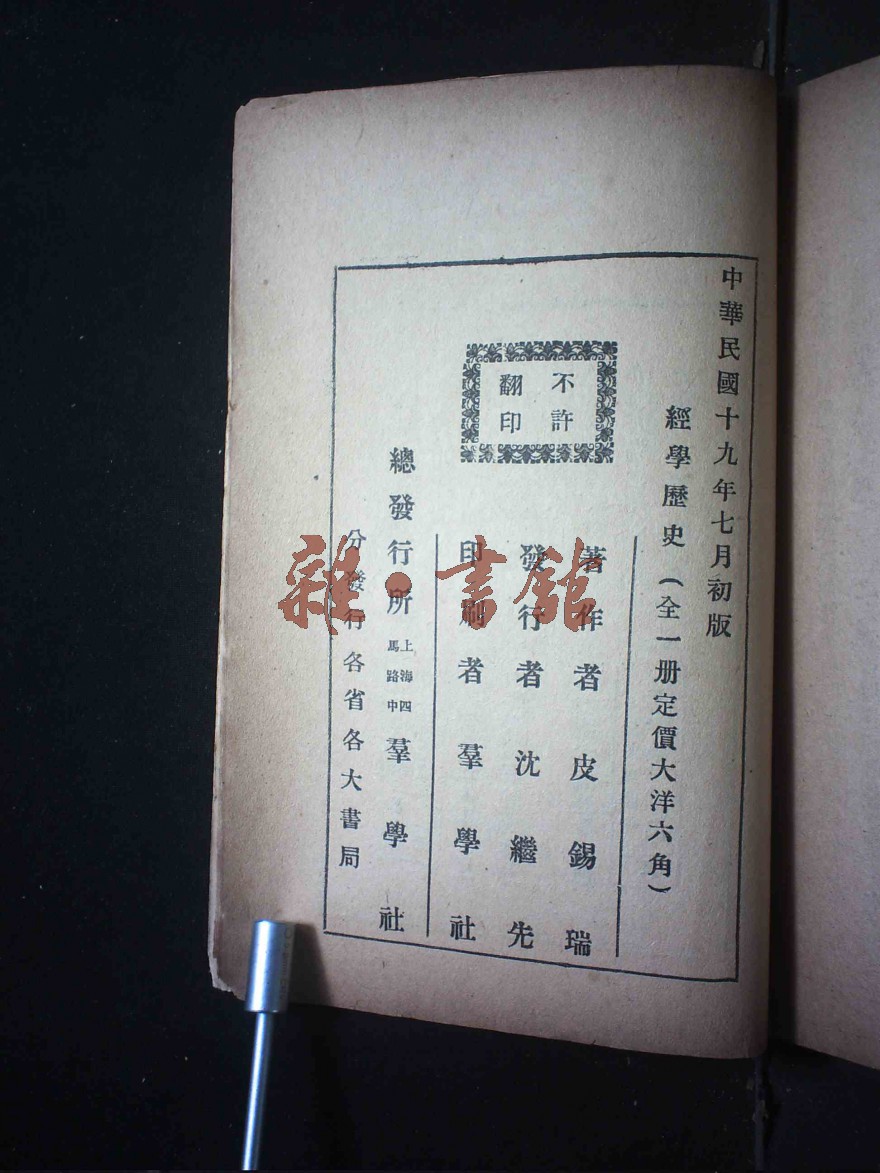 中華民國十九年七月初版
經學歷史（全一册定價大洋六角）
不許
翻印
著作者 皮錫瑞
發行者 沈繼先
印刷者 羣學社
總發行所 上海四馬路中 羣學社
分發行 各省各大書局
雜·書館